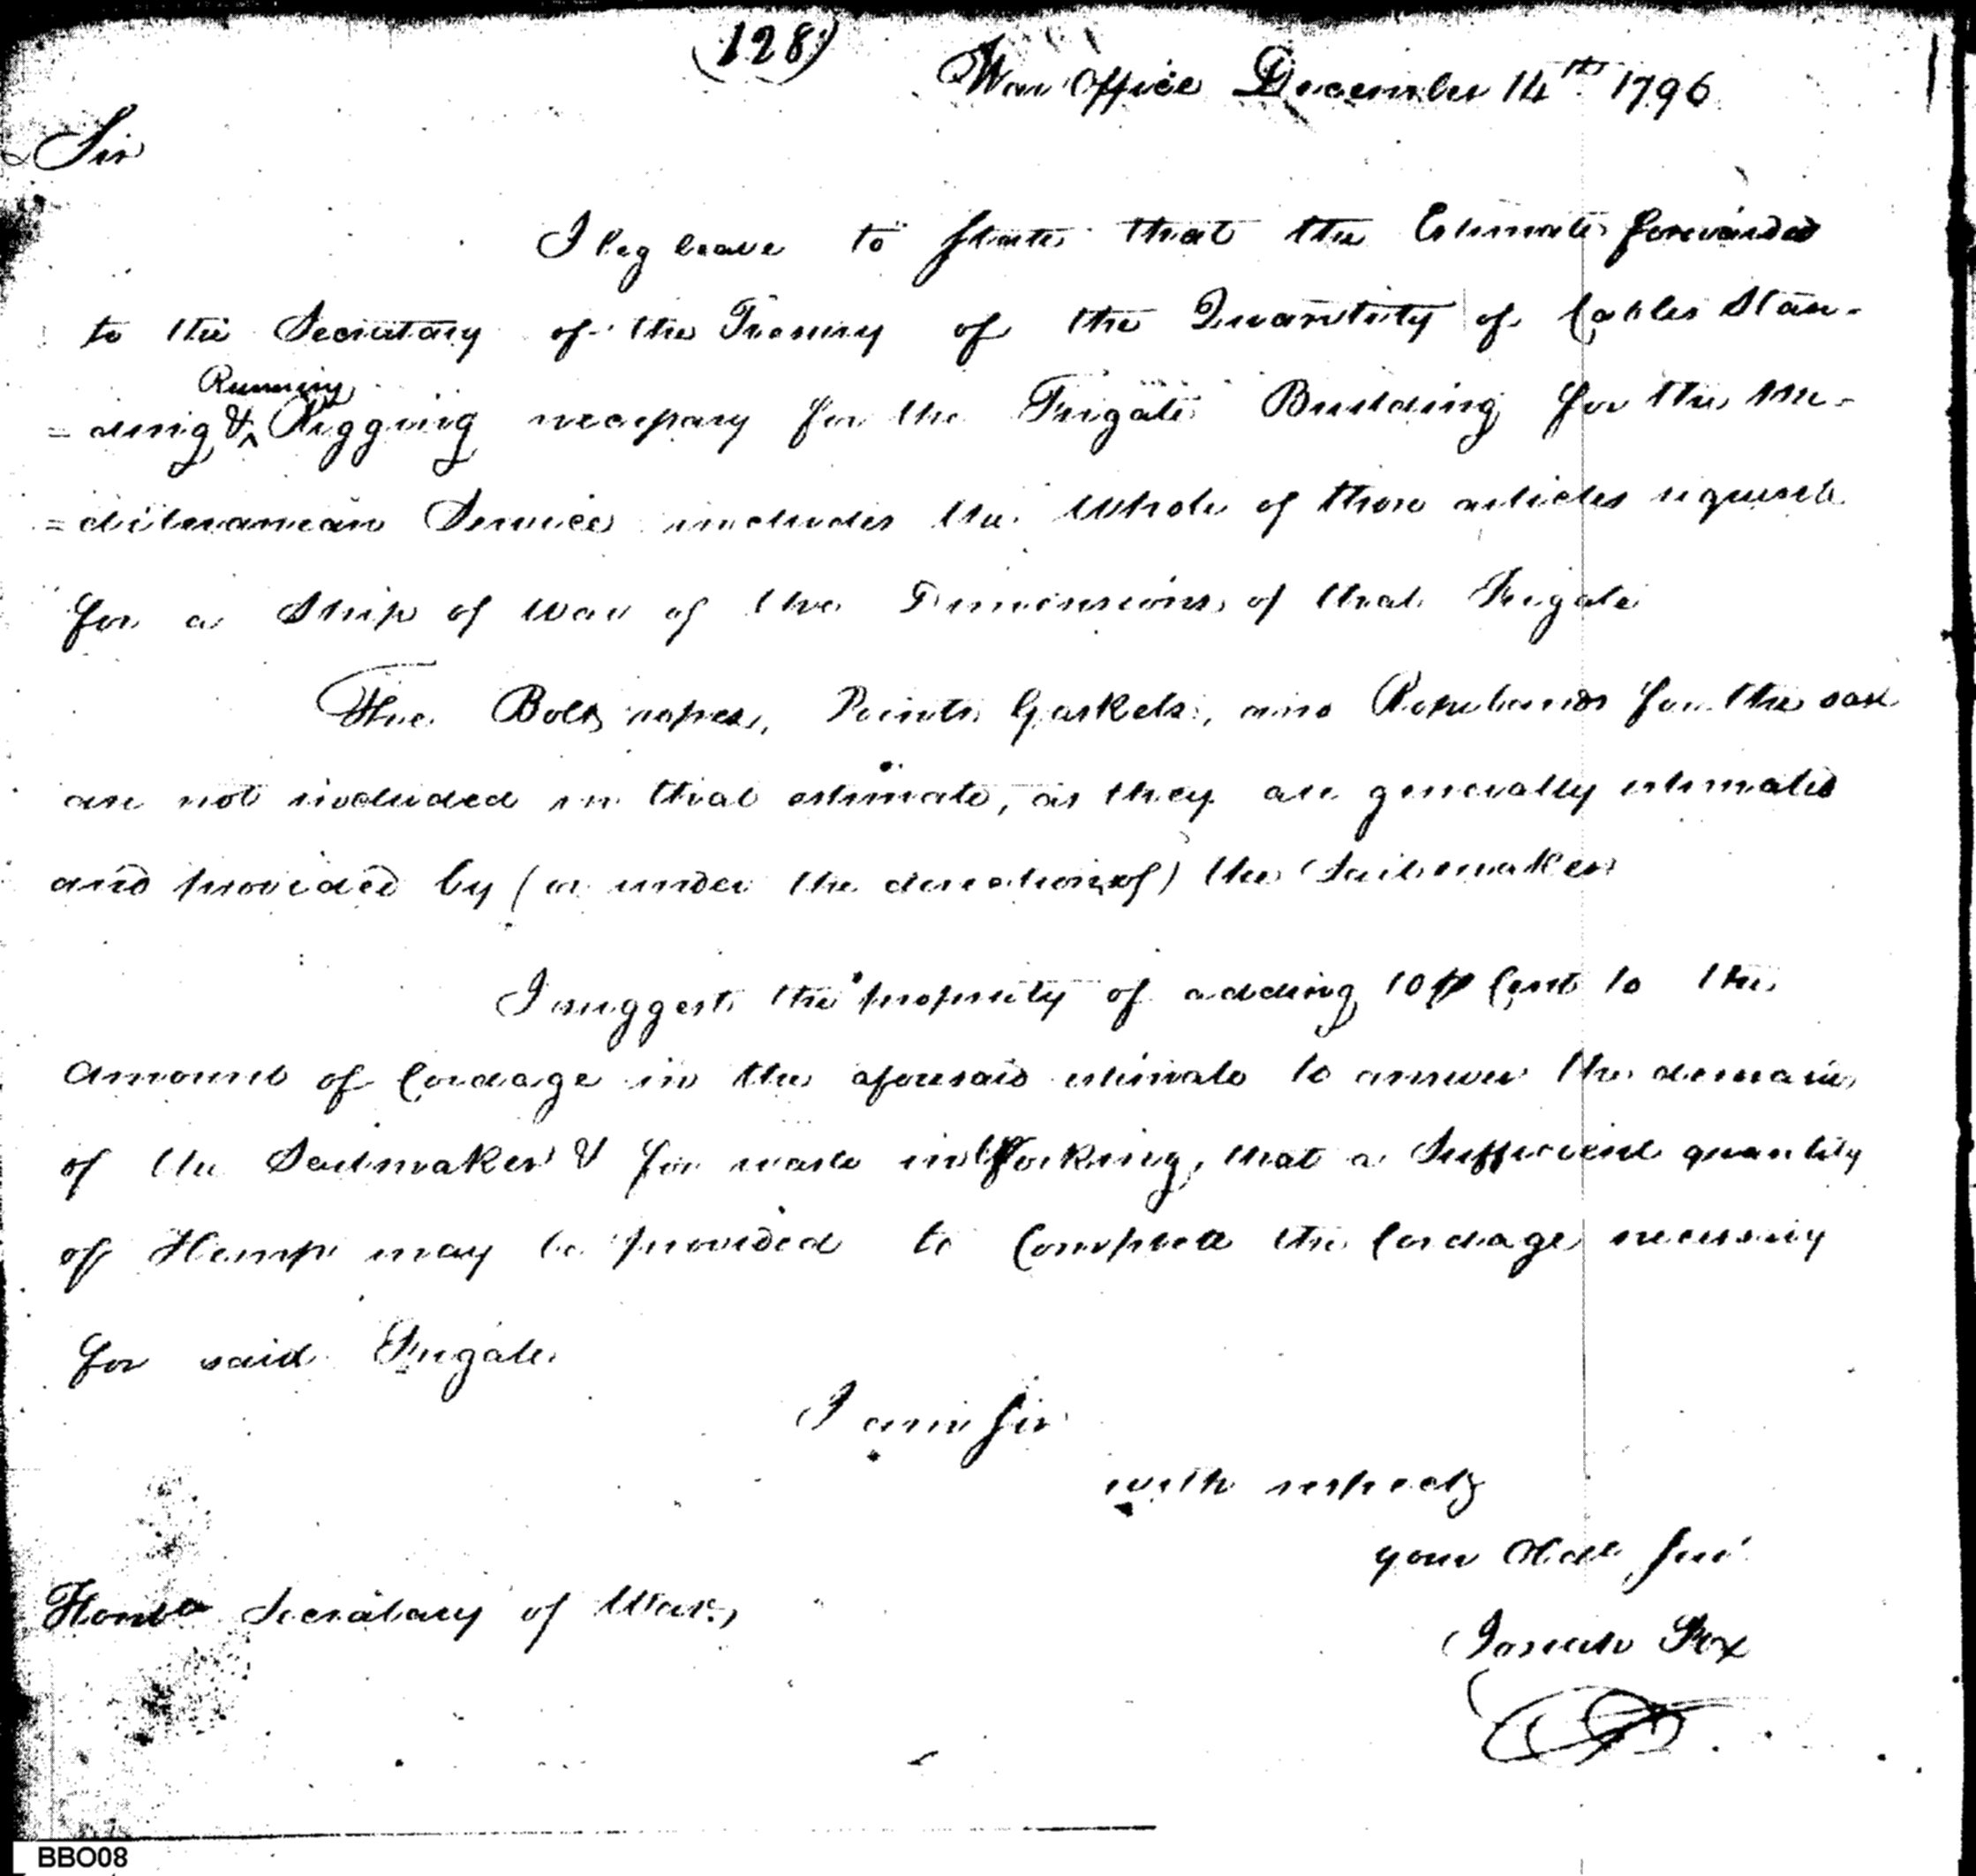 (128)
War Office December 14th 1796
Sir
I beg leave to state that the Estimate forwarded
to the Secretary of the Treasury of the Quantity of Cables Stan-
Running
=ding & ^ Rigging necessary for the Frigate Building for the Me-
=diteranean Service includes the Whole of those articles requisite
for a Ship of War of the Dimensions of that Frigate
The Bolt ropes, Points, Gaskets, and Ropebands for the
are not included in that estimate, as they are generally estimated
and provided by (or under the direction of) the Sailmaker
I suggest the propriety of adding 10 p Cent to the
amount of Cordage in the aforesaid estimate to answer the demands
of the Sailmaker & for waste in Working, that a Sufficient quantity
of Hemp may be provided to Complete the Cordage necessary
for said Frigate
I am Sir
with respect
your Obdt Servt
Honble Secretary of War,
Josiah Fox
BBO08